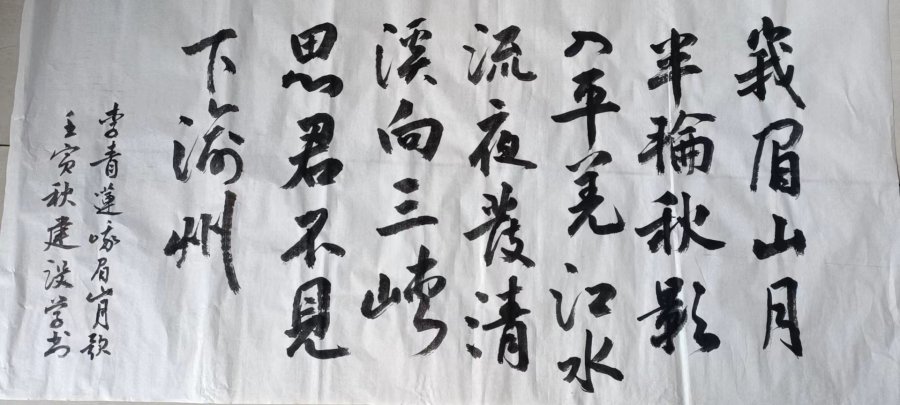 峩眉山月
半輪秋影
入平羌江水
流夜發清
溪向三峽
思君不見
下渝州
李青蓮峨眉山月歌
壬寅秋建设学书